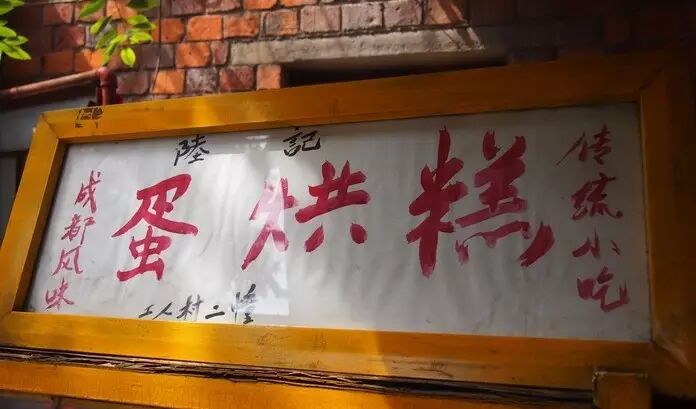 陸記
成都风味
蛋烘糕
传统小吃
工人村二陸